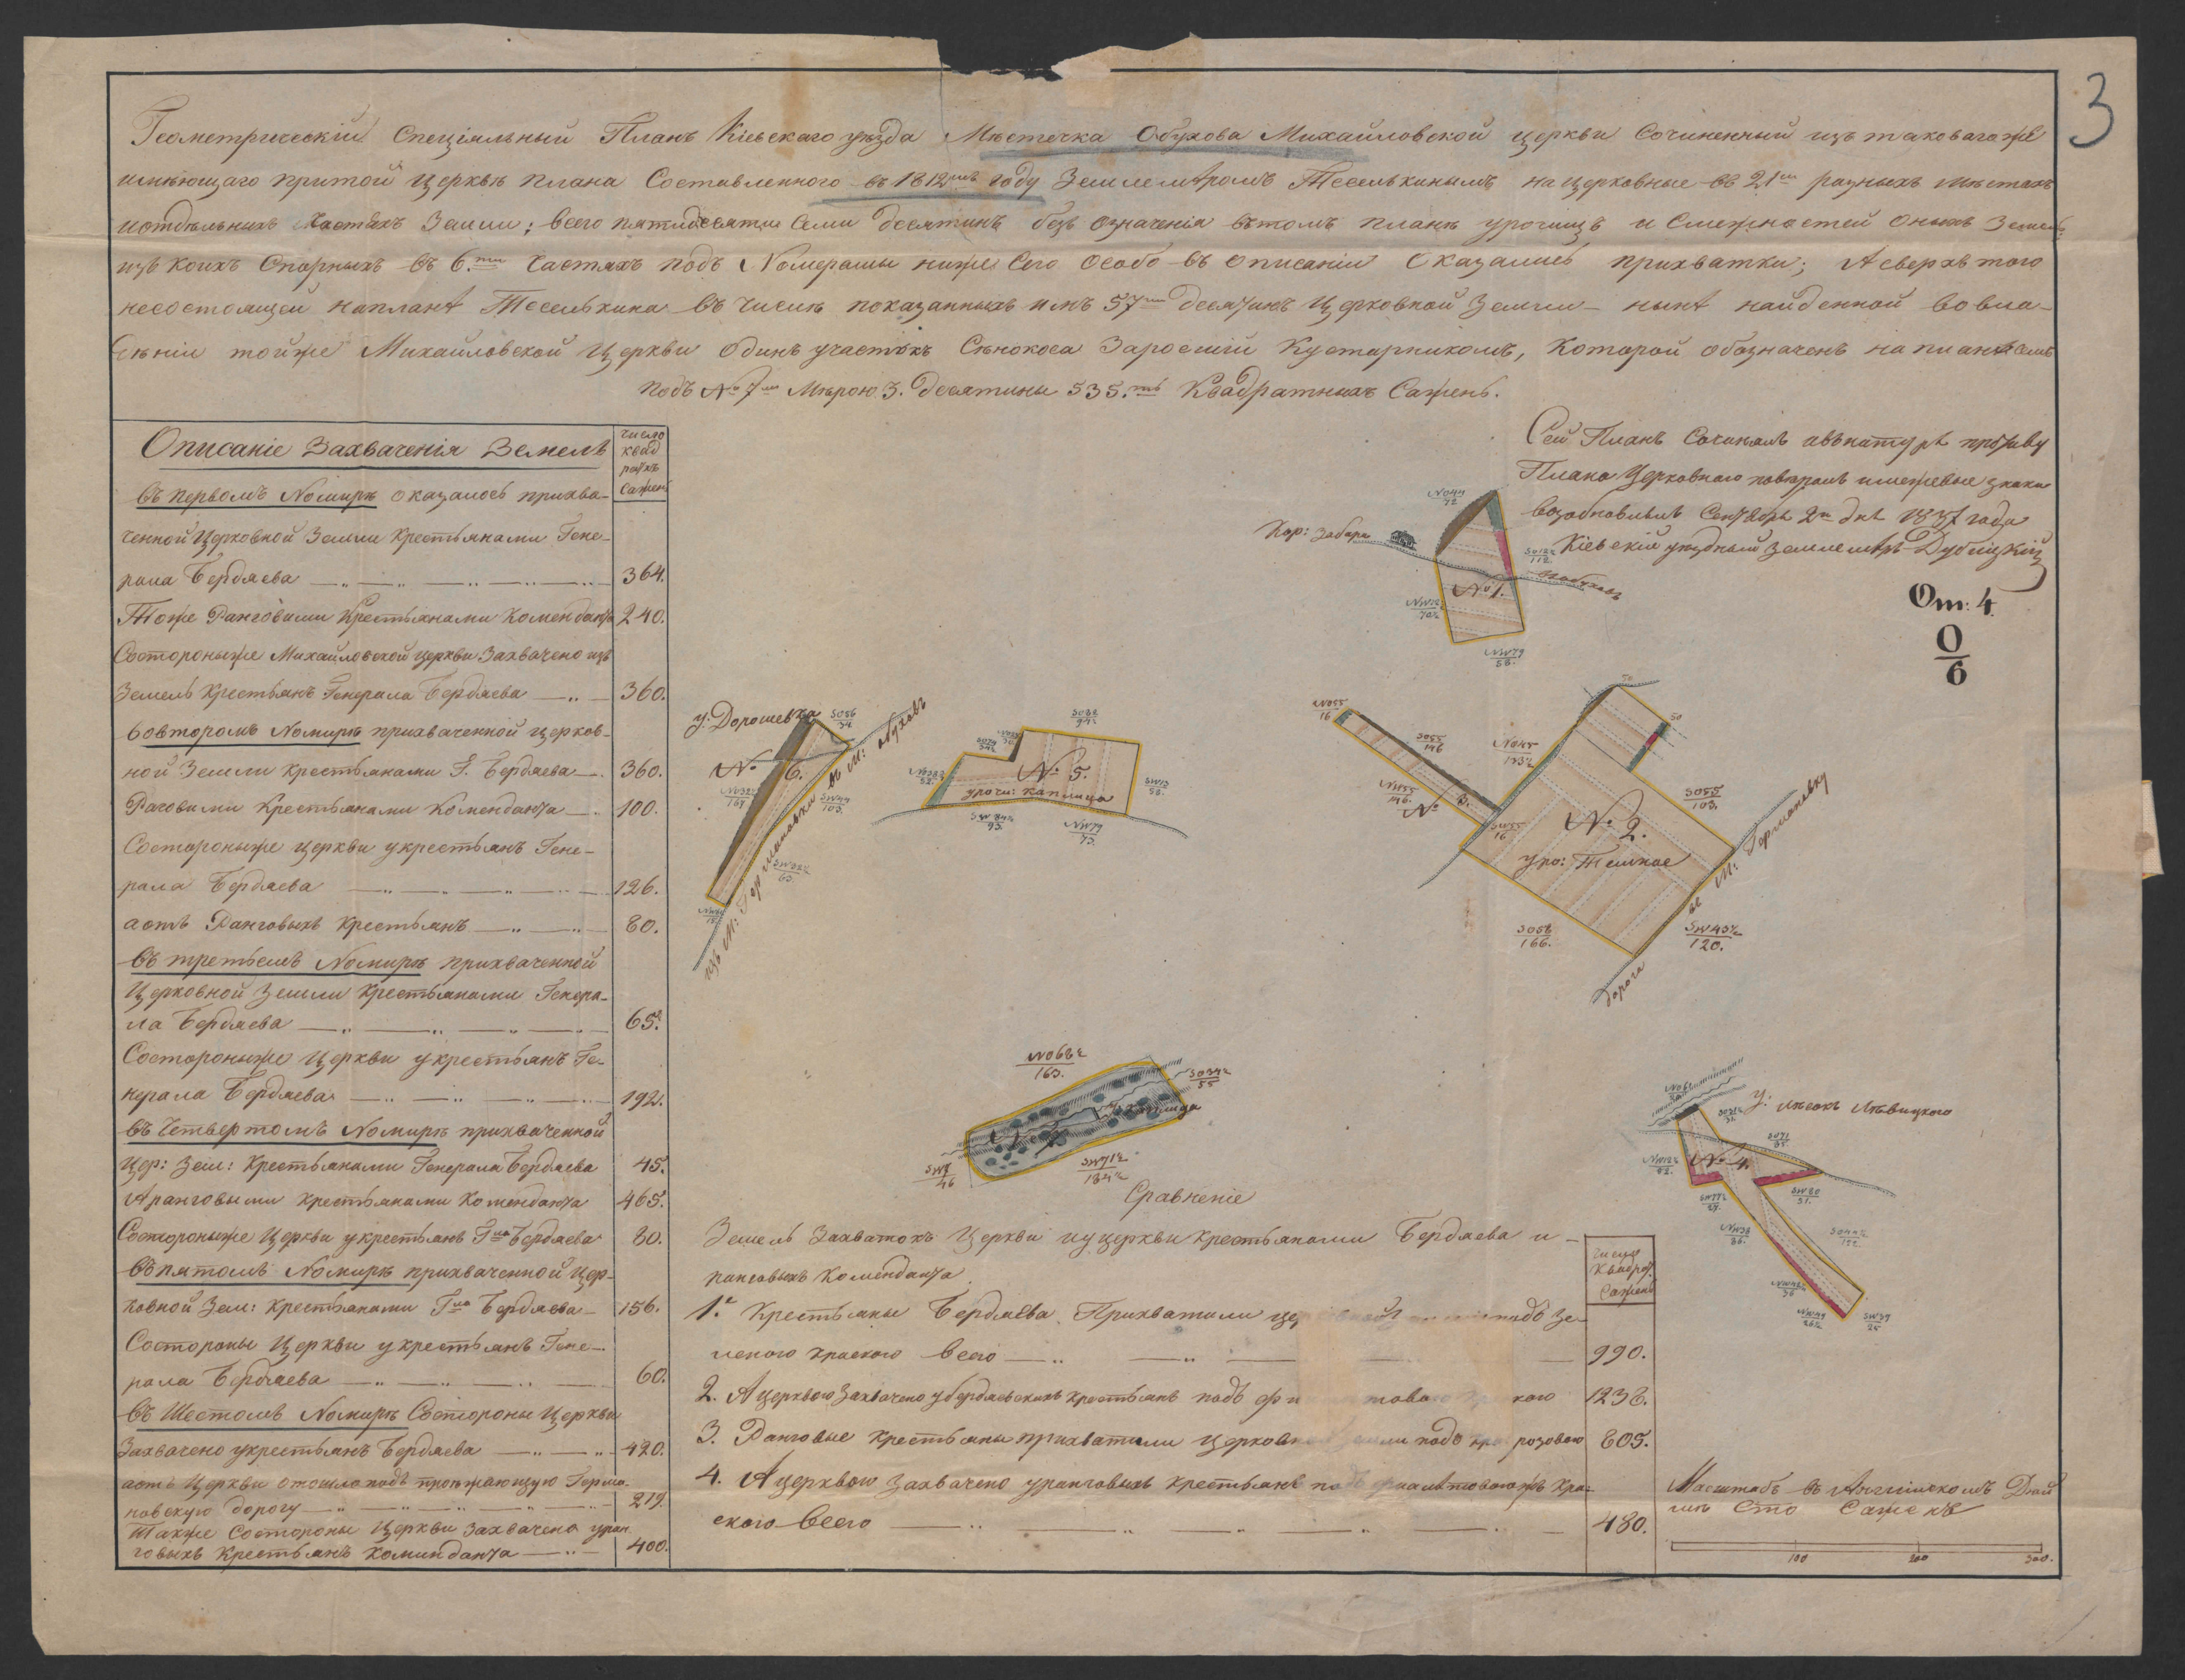 3
Геометрическій Спеціяльный Планъ Кіевскаго уѣзда Мѣстечка Обухова Михайловской церкви Сочиненный изъ таковагоже
имѣющаго притой Церквѣ плана Составленного въ 1812мъ году Землемѣромъ Тесельхинымъ на церковные въ 21мъ разныхъ мѣстахъ
иотдѣльныхъ Частяхъ Земли; всего пятидесяти Семи десятинъ безъ означенія втомъ планѣ урочищъ и Смежностей Оныхъ Земель,
изъ Коихъ Спорныхъ въ 6.ти Частяхъ подъ Номерамы ниже Сего Особо въ Описаніи Оказались прихватки; А сверхъ того
несостоящей напланѣ Тесельхина въ числѣ показанныхъ имъ 57ми десятинъ Церковной Земли нынѣ найденной вовла-
дѣніи тойже Михайловской Церкви Одинъ участокъ Сѣнокоса Заросшій Кустарникомъ, Которой обозначенъ на планѣ семъ
подъ № 7мъ Мѣрою 3. Десятины 535.ть Квадратныхъ Сажень.
Описаніе Захваченія Земель
число
квад
ратъ
Сажень
Въ первомъ Номирѣ оказалось прихва-
ченной Церковной Земли Крестьянами Гене-
рала Бердяева 364.
Тоже Ранговыми Крестьянами Коменданта 240.
Состороныже Михайловской церкви Захвачено изъ
Земель Крестьянъ Генерала Бердяева 360.
Вовторомъ Номирѣ прихваченной церков-
ной Земли Крестьянами Г. Бердяева 360.
Раговыми Крестьянами Коменданта 100.
Состороныже церкви укрестьянъ Гене-
рала Бердяева 126.
аотъ Ранговыхъ Крестьянъ 80.
Въ третьемъ Номирѣ прихваченной
Церковной Земли Крестьянами Генера-
ла Бердяева 65.
Состороныже Церкви укрестьянъ Ге-
нерала Бердяева 192.
Въ Четвертомъ Номирѣ прихваченной
Цер: Зем: Крестьянами Генерала Бердяева 45.
Аранговыми крестьянами Коменданта 465.
Состороныже Церкви укрестьянъ Гна Бердяева 80.
Въ пятомъ Номирѣ прихваченной Цер-
ковной Зем: Крестьянами Гна Бердяева 156.
Состороны Церкви укрестьянъ Гене-
рала Бердяева 60.
Въ Шестомъ Номирѣ Состороны Церкви
Захвачено укрестьянъ Бердяева 420.
аотъ Церкви отошло подъ проѣзжающую Герма-
новскую дорогу 219.
Также Состороны Церкви Захвачено уран-
говыхъ Крестьянъ Коминданта 400.
Сей Планъ Сочинялъ
Плана Церковного повѣрялъ имежевые знаки
возобновлялъ Сентября 2го дня 1837 года
Кіевскій уѣздный Землемѣръ Дубницкій
От: 4
0
6
Кор: Забара
№ 1.
у: Дорошевка
№ 6.
изъ М: Германовки въ М: Обуховъ
№ 5.
урочи: каплица
№ 3.
№ 2.
уро: Темное
въ М: Германовку
дорога
SO55
103.
SW43½
120.
SO58
166.
NO68½
163.
SO34½
55
SW71½
184½
у: лѣсокъ Лѣвицкого
№ 4.
Сравненіе
Земель Захватокъ Церкви иуцеркви Крестьянами Бердяева и
ранговыхъ Коменданта
Число
Квадрат.
Сажень
1.е Крестьяне Бердяева Прихватили подъ Зе-
леною краскою всего 990.
2. Ацерквою Захвачено убердяевскихъ крестьянъ подъ 1238.
3. Ранговые крестьяны прихватили подъ розовою 805.
4. Ацерквою Захвачено уранговыхъ крестьянъ подъ фиалѣтовоюжъ Кра-
скою Всего 480.
Масштабъ въ Англинскомъ Дюй
мѣ Сто Саженъ
100 200 300.